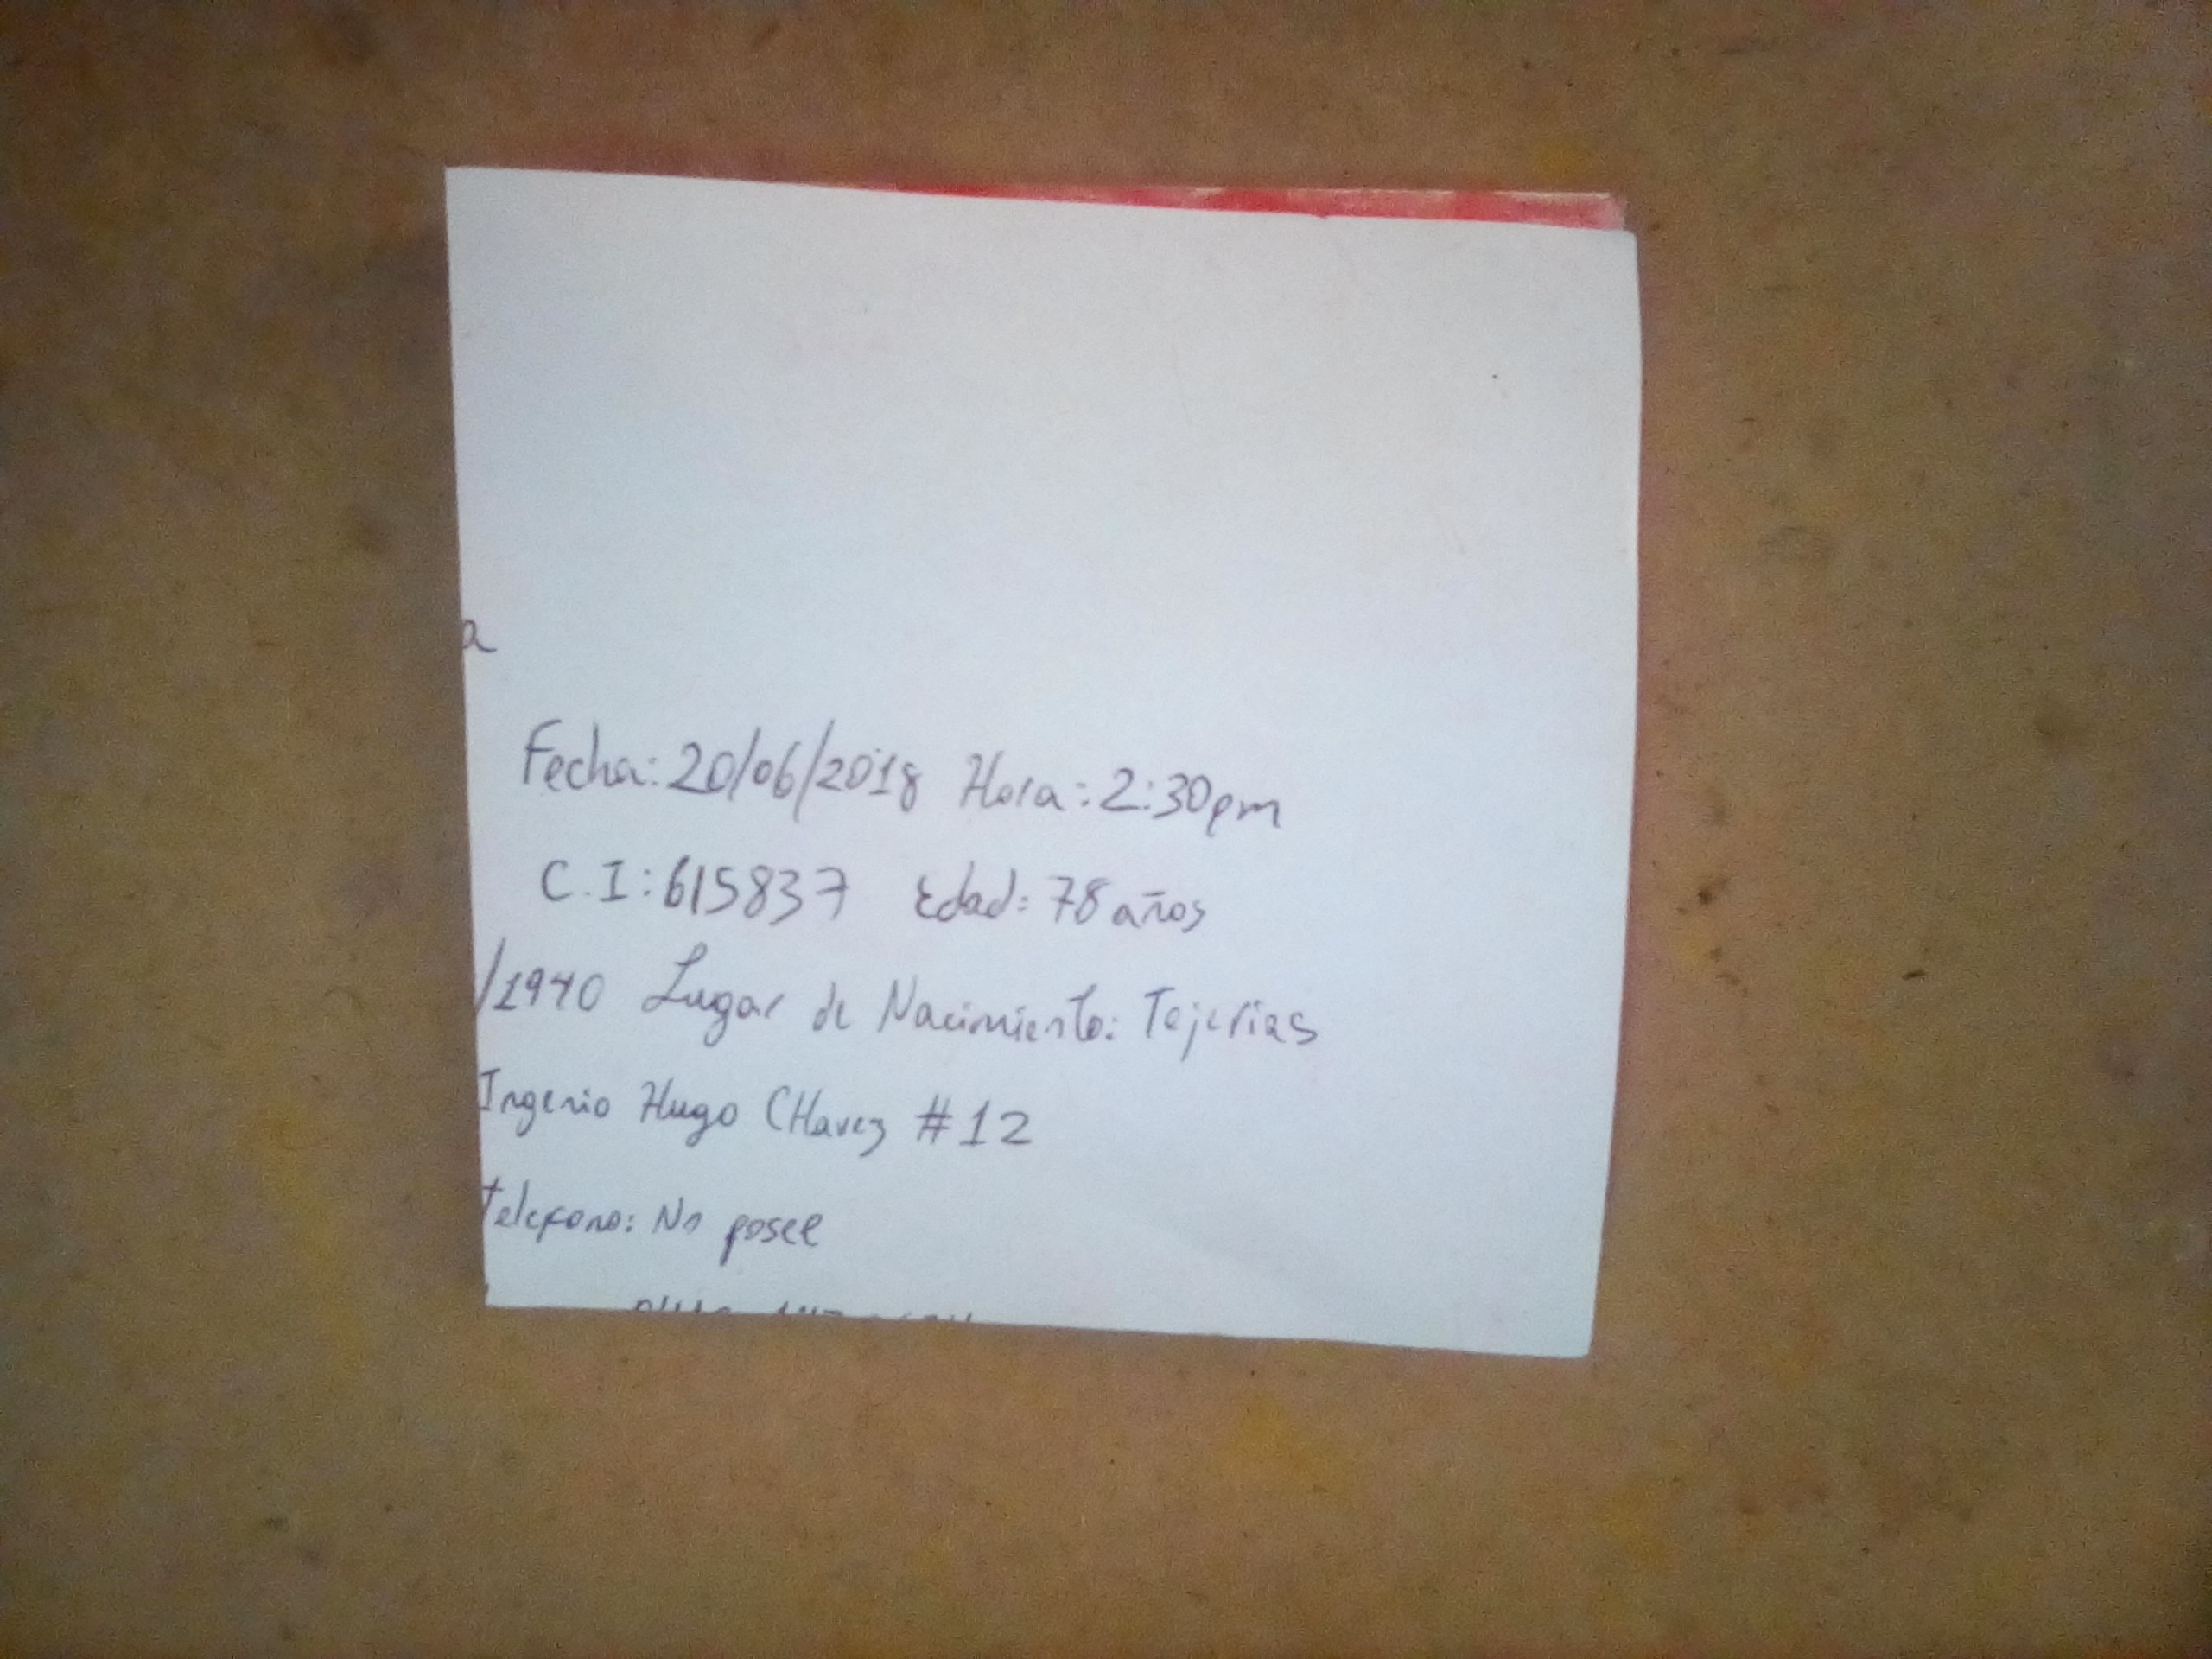 a
Fecha: 20/06/2018 Hora: 2:30pm
C.I: 615837 Edad: 78 años
/1940 Lugar de Nacimiento: Tejerias
Ingenio Hugo CHavez #12
Telefono: No posee